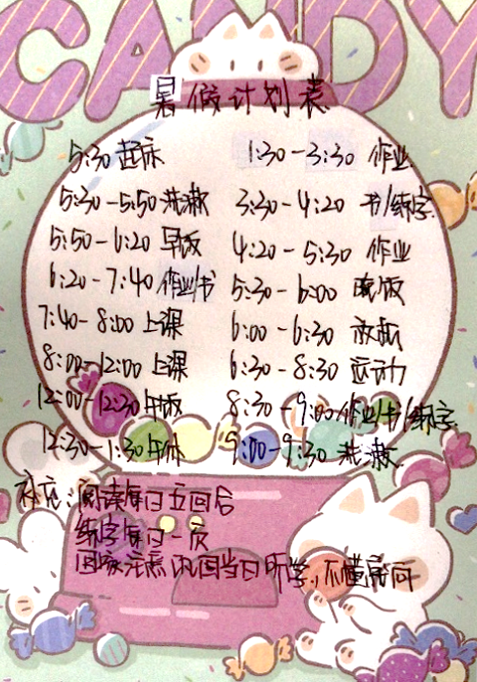 CANDY
暑假计划表
5:30 起床
5:30-5:50 洗漱
5:50-6:20 早饭
6:20-7:40 作业/书
7:40-8:00 上课
8:00-12:00 上课
12:00-12:30 午饭
12:30-1:30 午休
1:30-3:30 作业
3:30-4:20 书/练字
4:20-5:30 作业
5:30-6:00 晚饭
6:00-6:30
6:30-8:30 运动
8:30-9:00 作业/书/练字
9:00-9:30 洗漱
补充:阅读每日五回合
练字每日一页
回家先 巩固当日所学,不懂完问